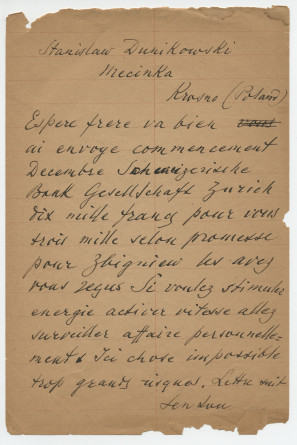 Stanislaw Dunikowski
Mecinka
Krosno (Poland)
Espere frere va bien vous
ai envoye commencement
Decembre Schweizerische
Bank Gesellschaft Zurich
Dix mille francs pour vous
trois mille selon promesse
pour Zbigniew les avez
vous reçus Si voulez stimuler
energie activer vitesse allez
surveiller affaire personnelle-
ment. Ici chose impossible
trop grands risques. Lettre suit